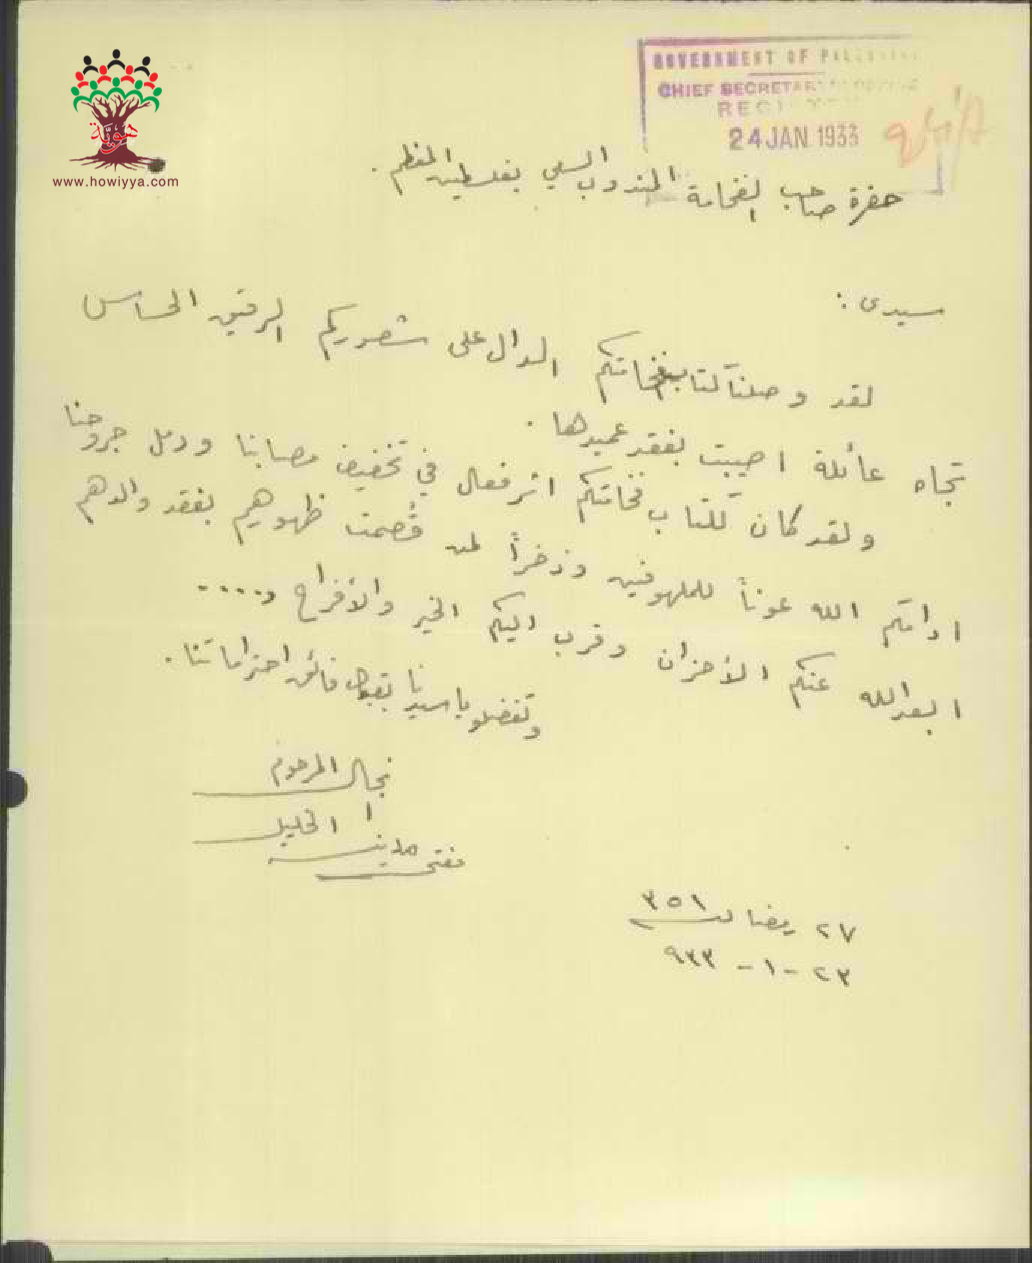 هوية
www.howiyya.com
GOVERNMENT OF PALESTINE
CHIEF SECRETARY'S OFFICE
REGISTRY
24 JAN 1933
حضرة صاحب الفخامة المندوب السامي بفلسطين المعظم .
سيدى :
لقد وصلنا كتاب فخامتكم الدال على شعوركم الرقيق الحساس
تجاه عائلة اصيبت بفقد عميدها .
ولقد كان لكتاب فخامتكم اثر فعال في تخفيف مصابنا ودمل جروحنا
ادامكم الله عوناً للملهوفين وذخراً لمن قُصمت ظهورهم بفقد والدهم
ابعد الله عنكم الأحزان وقرب اليكم الخير والأفراح و....
وتفضلو يا سيدنا بقبول فائق احتراماتنا .
انجال المرحوم
مفتي مدينة الخليل
٢٧ رمضان ٣٥١
٢٣ - ١ - ٩٣٣